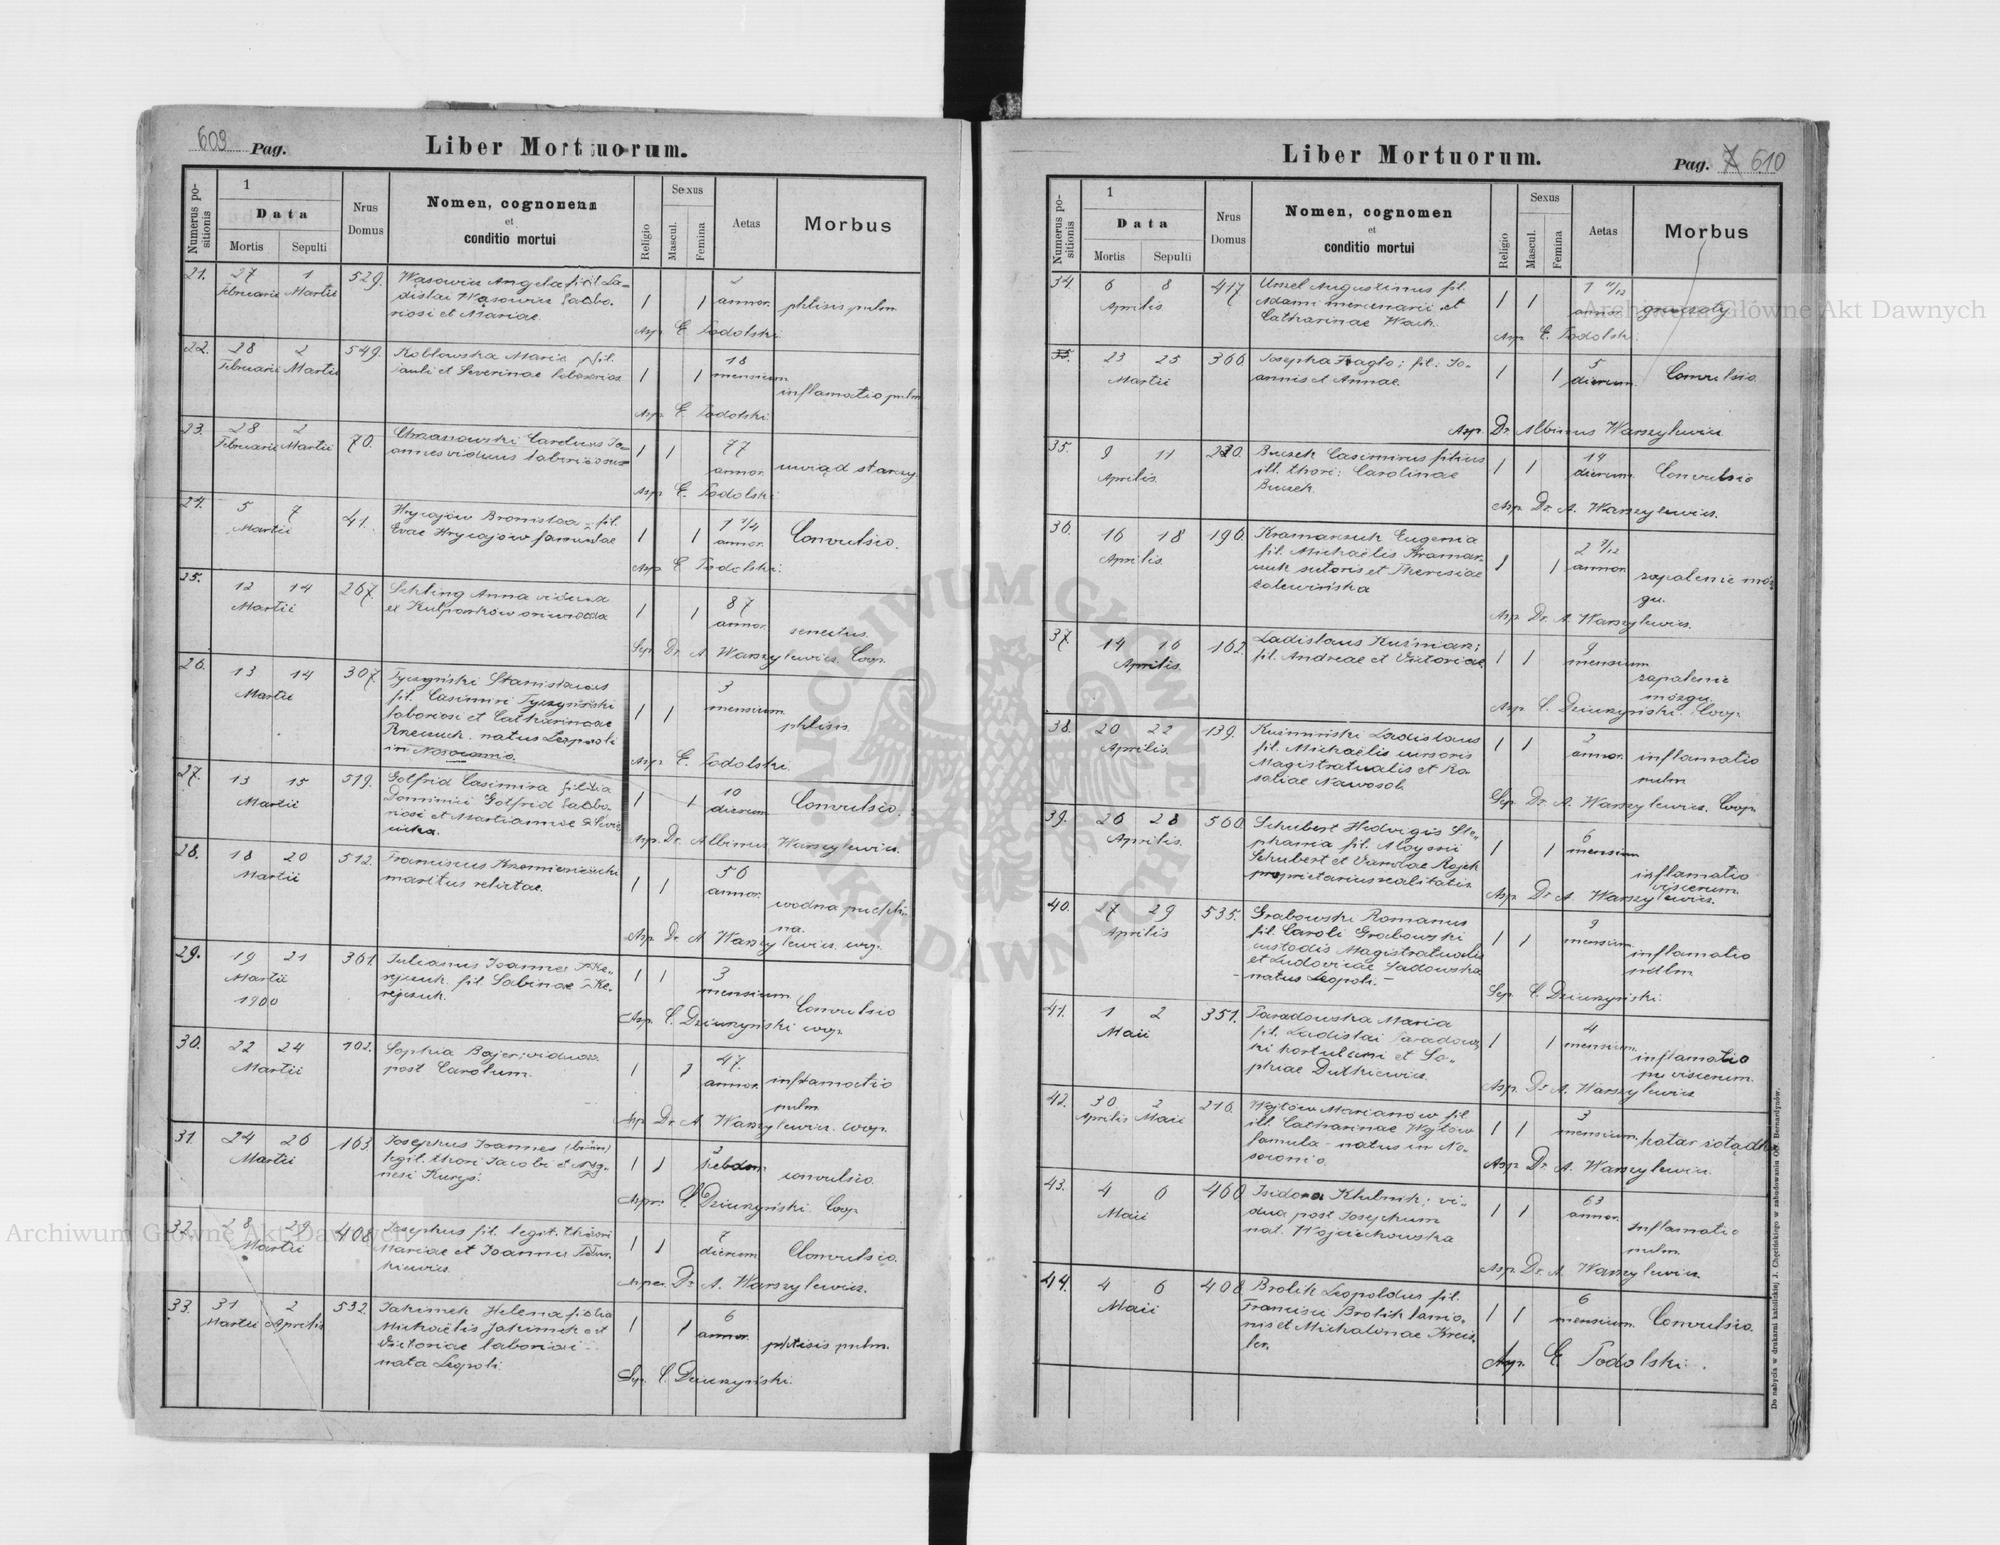 609 Pag.
Liber Mortuorum.
Numerus positionis
1
Data
Mortis
Sepulti
Nrus Domus
Nomen, cognomen
et
conditio mortui
Religio
Sexus
Mascul.
Femina
Aetas
Morbus
21. 27 1 529. Wasowicz Angela fil. La-
Februarii Martii dislai Wąsowicz labo- 1 1 annor. phtisis pulm.
riosi et Mariae
Asp. E. Podolski
22. 28 2 549. Kobłowska Maria fil. 18
Februarii Martii Pauli et Severinae 1 1 mensium
inflamatio pulm
Asp. E. Podolski
23. 28 2 70. Chrzanowski Carolus Jo- 77
Februarii Martii annes viduus laboriosus 1 1 annor. uwiąd starczy
Asp. E. Podolski
24. 5 7 41. Hrycajów Bronislaa fil. 1 1/4
Martii Evae Hrycajów famulae 1 1 annor. Convulsio.
Asp. E. Podolski.
25. 12 14 267. Sehling Anna vidua 87
Martii ex Kulparków oriunda 1 1 annor. senectus.
Sep. Dr. A Warszylewicz. Coop.
26. 13 14 307. Tyczyński Stanislaus 3
Martii fil. Casimiri Tyczyński mensium
laboriosi et Catharinae 1 1 phtisis
Rzeszuch. natus Leopoli
in Nosocomio.
Asp. E. Podolski.
27. 13 15 519. Golfrid Casimira filia 10
Martii Dominici Golfrid labo- 1 1 dierum Convulsio.
riosi et Mariannae
Asp. Dr. Albinus Warszylewicz.
28. 18 20 512. Franciscus 56
Martii maritus relictae. 1 1 annor.
wodna puchli-
na.
Asp. Dr. A Warszylewicz. coop.
29. 19 21 361. Julianus Joannes Ke- 3
Martii rejczuk. fil. Sabinae Ke- 1 1 mensium
1900 rejczuk. Convulsio
Asp. C. Dziurzyński coop.
30. 22 24 102. Sophia Bajer; vidua 47.
Martii post Carolum. 1 1 annor. inflamatio
pulm
Asp. Dr. A Warszylewicz. coop.
31. 24 26 163. Josephus Joannes (binom) 3
Martii legit. thori Jacobi et Ag- 1 1 hebdom. convulsio.
nesi Kurys.
Asper. C. Dziurzyński. Coop
32. 28 29 408 Josephus fil. legit. thori 7
Martii Mariae et Joannis 1 1 dierum Convulsio.
kiewicz.
Asper. Dr. A. Warszylewicz.
33. 31 2 532. Jakimek Helena filia 6
Martii Aprilis Michaelis Jakimek et 1 1 annor. phtisis pulm.
Victoriae laboriosi
nata Leopoli.
Sep. C. Dziurzyński.
Liber Mortuorum.
Pag. 7 610
Numerus positionis
1
Data
Mortis
Sepulti
Nrus Domus
Nomen, cognomen
et
conditio mortui
Religio
Sexus
Mascul.
Femina
Aetas
Morbus
34. 6 8 417. Urszel Augustinus fil. 1 11/12
Aprilis Adami mercenarii et 1 1 annor. gruźoły
Catharinae Wach.
Asp. E. Podolski.
35. 23 25 366. Josepha fil. Jo- 5
Martii annis et Annae. 1 1 dierum Convulsio.
Asp. Dr. Albinus Warszylewicz
35. 9 11 230. Buszek Casimirus filius 14
Aprilis ill. thori: Carolinae 1 1 dierum Convulsio
Buszek.
Asp. Dr. A. Warszylewicz.
36. 16 18 196. Kramarczuk Eugenia 2 7/12
Aprilis fil. Michaëlis Kramar- annor.
czuk sutoris et Theresiae 1 1 zapalenie móz-
Zalewińska gu.
Asp. Dr. A. Warszylewicz.
37. 14 16 162. Ladislaus Kuśmiar; 9
Aprilis fil. Andreae et Victoriae. 1 1 mensium
zapalenie
mózgu.
Asp. C. Dziurzyński. Coop.
38. 20 22 139. Kuśmiński Ladislaus 2
Aprilis fil. Michaëlis cursoris 1 1 annor. inflamatio
Magistratualis et Ro- pulm
saliae Nawosol.
Sep. Dr. A. Warszylewicz. Coop.
39. 26 28 500. Schubert Hedvigis Ste- 6
Aprilis phania fil. Aloysii 1 1 mensium
Schubert et Vandae Rajek inflamatio
proprietarius realitatis viscerum.
Asp. Dr. A. Warszylewicz.
40. 27 29 535. Grabowski Romanus 9
Aprilis fil. Caroli Grabowski 1 1 mensium
custodis Magistratualis inflamatio
et Ludovicae Sadowska pulm
natus Leopoli.
Sep. C. Dziurzyński.
41. 1 2 351. Paradowska Maria 4
Maii fil. Ladislai Paradow- 1 1 mensium
ski hortulani et So- inflamatio
phiae Dutkiewicz. viscerum.
Asp. Dr. A. Warszylewicz
42. 30 2 216. Wojtów Marianów fil. 3
Aprilis Maii ill. Catharinae Wojtów 1 1 mensium. katar żołądk
famula - natus in No-
socomio.
Asp. Dr. A. Warszylewicz.
43. 4 6 460 Isidora Klubnik; vi- 63
Maii dua post Josephum 1 1 annor.
nat. Wojciechowska inflamatio
pulm.
Asp. Dr. A. Warszylewicz.
44. 4 6 408. Brolik Leopoldus fil. 6
Maii Francisci Brolik lanio- 1 1 mensium. Convulsio.
nis et Michalinae Kreis-
ler.
Asp. E. Podolski.
Do nabycia w drukarni katolickiej J. Chęcińskiego w zabudowaniu OO. Bernardynów.
Archiwum Główne Akt Dawnych
Archiwum Główne Akt Dawnych
ARCHIWUM GŁÓWNE AKT DAWNYCH